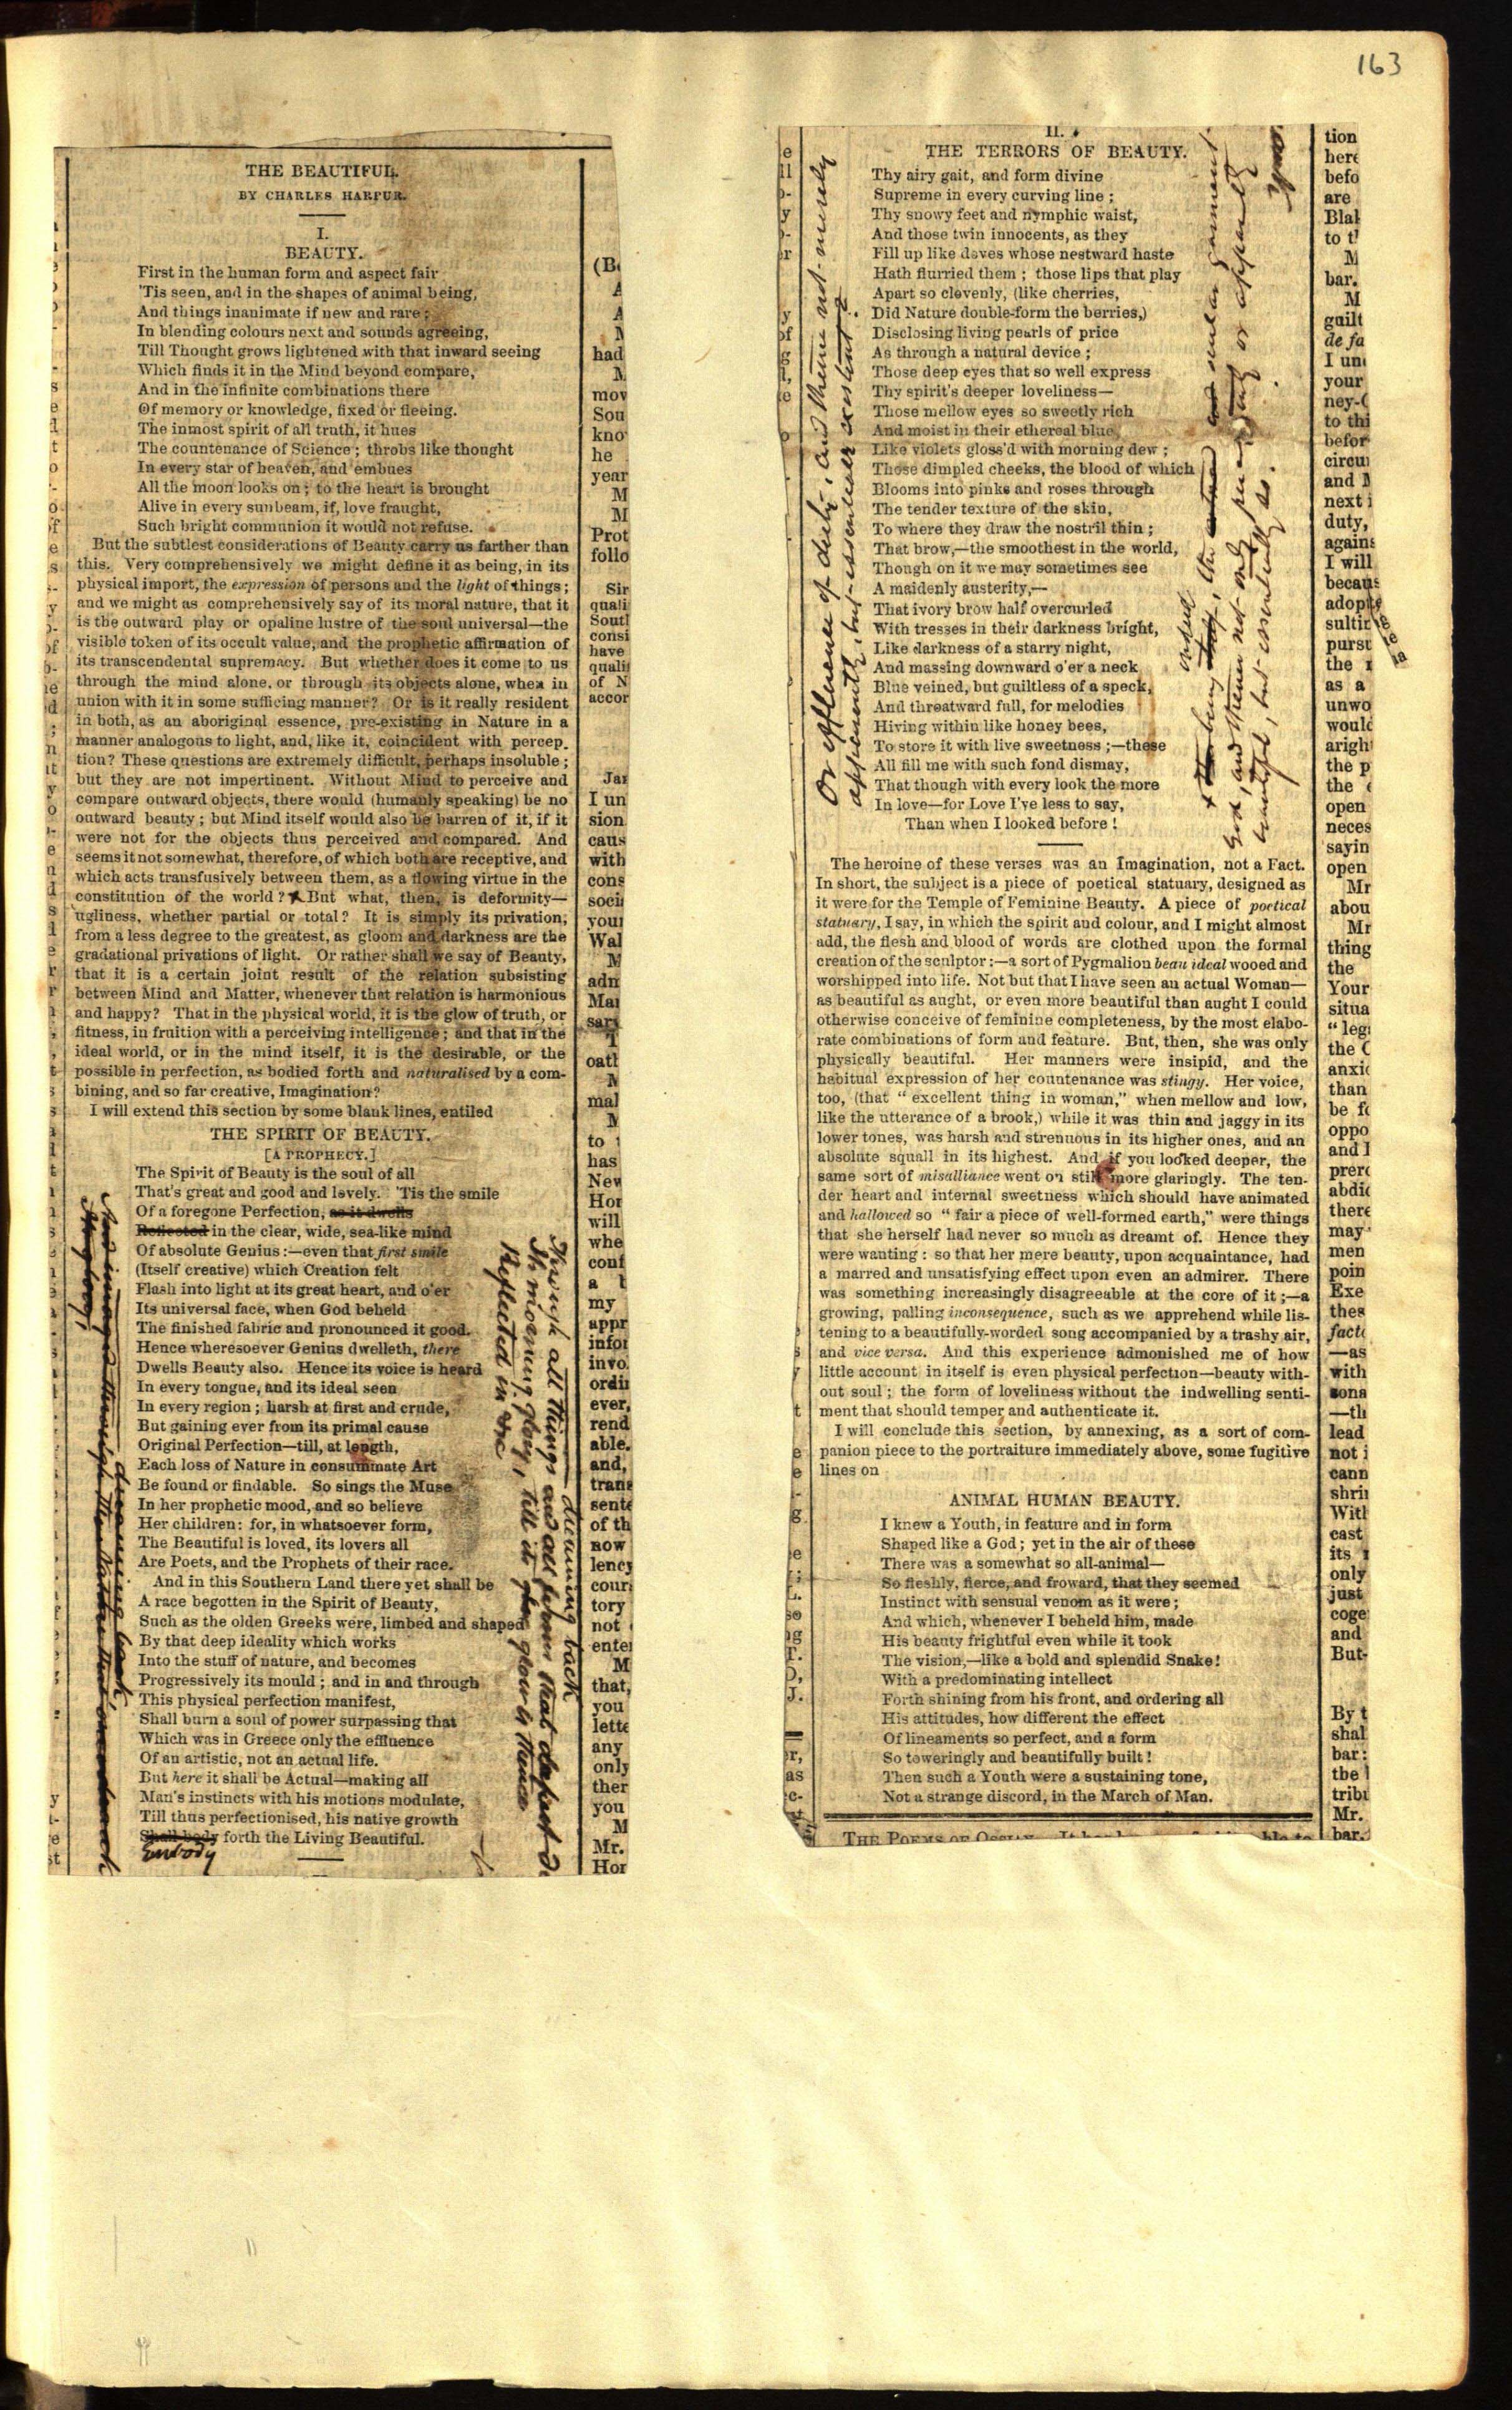 163
THE BEAUTIFUL.
BY CHARLES HARPUR.
I.
BEAUTY.
First in the human form and aspect fair
'Tis seen, and in the shapes of animal being,
And things inanimate if new and rare;
In blending colours next and sounds agreeing,
Till Thought grows lightened with that inward seeing
Which finds it in the Mind beyond compare,
And in the infinite combinations there
Of memory or knowledge, fixed or fleeing.
The inmost spirit of all truth, it hues
The countenance of Science; throbs like thought
In every star of heaven, and embues
All the moon looks on; to the heart is brought
Alive in every sunbeam, if, love fraught,
Such bright communion it would not refuse.
But the subtlest considerations of Beauty carry us farther than
this. Very comprehensively we might define it as being, in its
physical import, the expression of persons and the light of things;
and we might as comprehensively say of its moral nature, that it
is the outward play or opaline lustre of the soul universal—the
visible token of its occult value, and the prophetic affirmation of
its transcendental supremacy. But whether does it come to us
through the mind alone, or through its objects alone, when in
union with it in some sufficing manner? Or is it really resident
in both, as an aboriginal essence, pre-existing in Nature in a
manner analogous to light, and, like it, coincident with percep-
tion? These questions are extremely difficult, perhaps insoluble;
but they are not impertinent. Without Mind to perceive and
compare outward objects, there would (humanly speaking) be no
outward beauty; but Mind itself would also be barren of it, if it
were not for the objects thus perceived and compared. And
seems it not somewhat, therefore, of which both are receptive, and
which acts transfusively between them, as a flowing virtue in the
constitution of the world? x But what, then, is deformity—
ugliness, whether partial or total? It is simply its privation,
from a less degree to the greatest, as gloom and darkness are the
gradational privations of light. Or rather shall we say of Beauty,
that it is a certain joint result of the relation subsisting
between Mind and Matter, whenever that relation is harmonious
and happy? That in the physical world, it is the glow of truth, or
fitness, in fruition with a perceiving intelligence; and that in the
ideal world, or in the mind itself, it is the desirable, or the
possible in perfection, as bodied forth and naturalised by a com-
bining, and so far creative, Imagination?
I will extend this section by some blank lines, entiled
THE SPIRIT OF BEAUTY.
[A PROPHECY.]
The Spirit of Beauty is the soul of all
That's great and good and lovely. 'Tis the smile
Of a foregone Perfection, as it dwells
Reflected in the clear, wide, sea-like mind
Of absolute Genius:—even that first smile
(Itself creative) which Creation felt
Flash into light at its great heart, and o'er
Its universal face, when God beheld
The finished fabric and pronounced it good.
Hence wheresoever Genius dwelleth, there
Dwells Beauty also. Hence its voice is heard
In every tongue, and its ideal seen
In every region; harsh at first and crude,
But gaining ever from its primal cause
Original Perfection—till, at length,
Each loss of Nature in consummate Art
Be found or findable. So sings the Muse
In her prophetic mood, and so believe
Her children: for, in whatsoever form,
The Beautiful is loved, its lovers all
Are Poets, and the Prophets of their race.
And in this Southern Land there yet shall be
A race begotten in the Spirit of Beauty,
Such as the olden Greeks were, limbed and shaped
By that deep ideality which works
Into the stuff of nature, and becomes
Progressively its mould; and in and through
This physical perfection manifest,
Shall burn a soul of power surpassing that
Which was in Greece only the effluence
Of an artistic, not an actual life.
But here it shall be Actual—making all
Man's instincts with his motions modulate,
Till thus perfectionised, his native growth
Shall body forth the Living Beautiful.
Embody
Through all things and all forms that
dawning back
Its morning glory, till it glow
Reflected in the
II.
THE TERRORS OF BEAUTY.
Thy airy gait, and form divine
Supreme in every curving line;
Thy snowy feet and nymphic waist,
And those twin innocents, as they
Fill up like doves whose nestward haste
Hath flurried them; those lips that play
Apart so clevenly, (like cherries,
Did Nature double-form the berries,)
Disclosing living pearls of price
As through a natural device;
Those deep eyes that so well express
Thy spirit's deeper loveliness—
Those mellow eyes so sweetly rich
And moist in their ethereal blue,
Like violets gloss'd with morning dew;
Those dimpled cheeks, the blood of which
Blooms into pinks and roses through
The tender texture of the skin,
To where they draw the nostril thin;
That brow,—the smoothest in the world,
Though on it we may sometimes see
A maidenly austerity,—
That ivory brow half overcurled
With tresses in their darkness bright,
Like darkness of a starry night,
And massing downward o'er a neck
Blue veined, but guiltless of a speck,
And throatward full, for melodies
Hiving within like honey bees,
To store it with live sweetness;—these
All fill me with such fond dismay,
That though with every look the more
In love—for Love I've less to say,
Than when I looked before!
Or effluence of deity, and thence not merely
The heroine of these verses was an Imagination, not a Fact.
In short, the subject is a piece of poetical statuary, designed as
it were for the Temple of Feminine Beauty. A piece of poetical
statuary, I say, in which the spirit and colour, and I might almost
add, the flesh and blood of words are clothed upon the formal
creation of the sculptor:—a sort of Pygmalion beau ideal wooed and
worshipped into life. Not but that I have seen an actual Woman—
as beautiful as aught, or even more beautiful than aught I could
otherwise conceive of feminine completeness, by the most elabo-
rate combinations of form and feature. But, then, she was only
physically beautiful. Her manners were insipid, and the
habitual expression of her countenance was stingy. Her voice,
too, (that "excellent thing in woman," when mellow and low,
like the utterance of a brook,) while it was thin and jaggy in its
lower tones, was harsh and strenuous in its higher ones, and an
absolute squall in its highest. And if you looked deeper, the
same sort of misalliance went on still more glaringly. The ten-
der heart and internal sweetness which should have animated
and hallowed so "fair a piece of well-formed earth," were things
that she herself had never so much as dreamt of. Hence they
were wanting: so that her mere beauty, upon acquaintance, had
a marred and unsatisfying effect upon even an admirer. There
was something increasingly disagreeable at the core of it;—a
growing, palling inconsequence, such as we apprehend while lis-
tening to a beautifully-worded song accompanied by a trashy air,
and vice versa. And this experience admonished me of how
little account in itself is even physical perfection—beauty with-
out soul; the form of loveliness without the indwelling senti-
ment that should temper and authenticate it.
I will conclude this section, by annexing, as a sort of com-
panion piece to the portraiture immediately above, some fugitive
lines on
ANIMAL HUMAN BEAUTY.
I knew a Youth, in feature and in form
Shaped like a God; yet in the air of these
There was a somewhat so all-animal—
So fleshly, fierce, and froward, that they seemed
Instinct with sensual venom as it were;
And which, whenever I beheld him, made
His beauty frightful even while it took
The vision,—like a bold and splendid Snake!
With a predominating intellect
Forth shining from his front, and ordering all
His attitudes, how different the effect
Of lineaments so perfect, and a form
So toweringly and beautifully built!
Then such a Youth were a sustaining tone,
Not a strange discord, in the March of Man.
THE POEMS OF OSSIAN